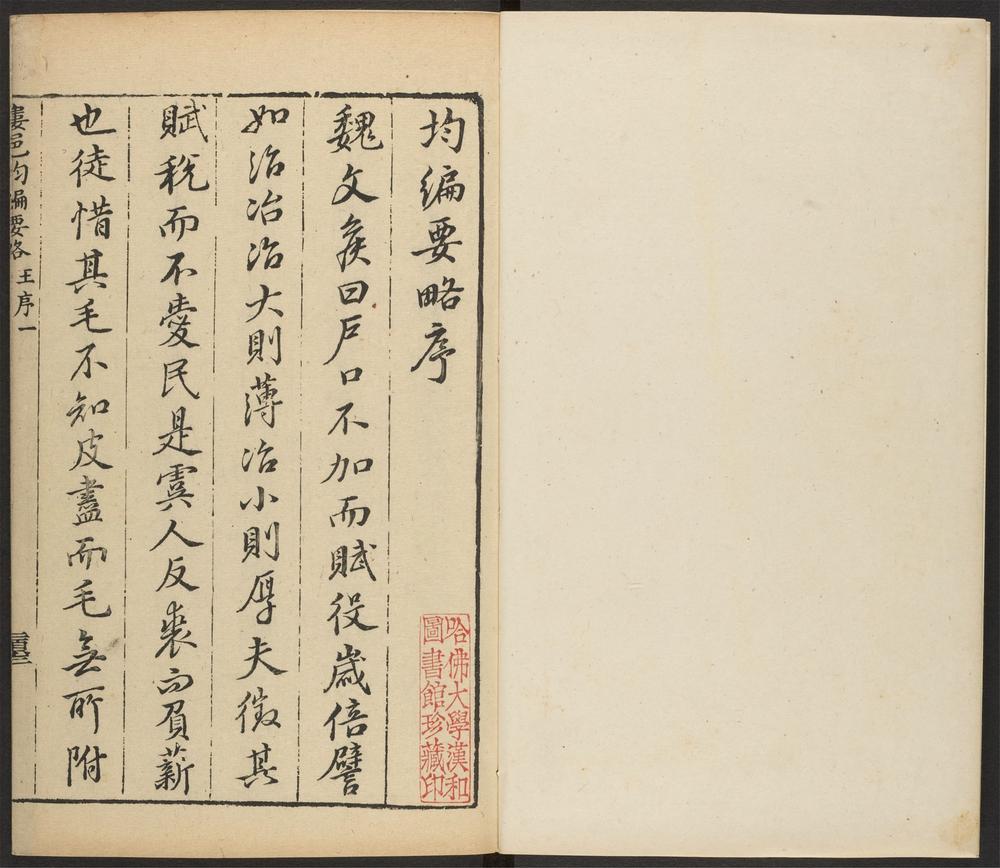 均編要略序
魏文矦曰戶口不加而賦役嵗倍譬
如治冶冶大則薄冶小則厚夫徵其
賦稅而不愛民是虞人反裘而負薪
也徒惜其毛不知皮盡而毛無所附
婁邑均編要略 王序一
哈佛大學漢和
圖書館珍藏印